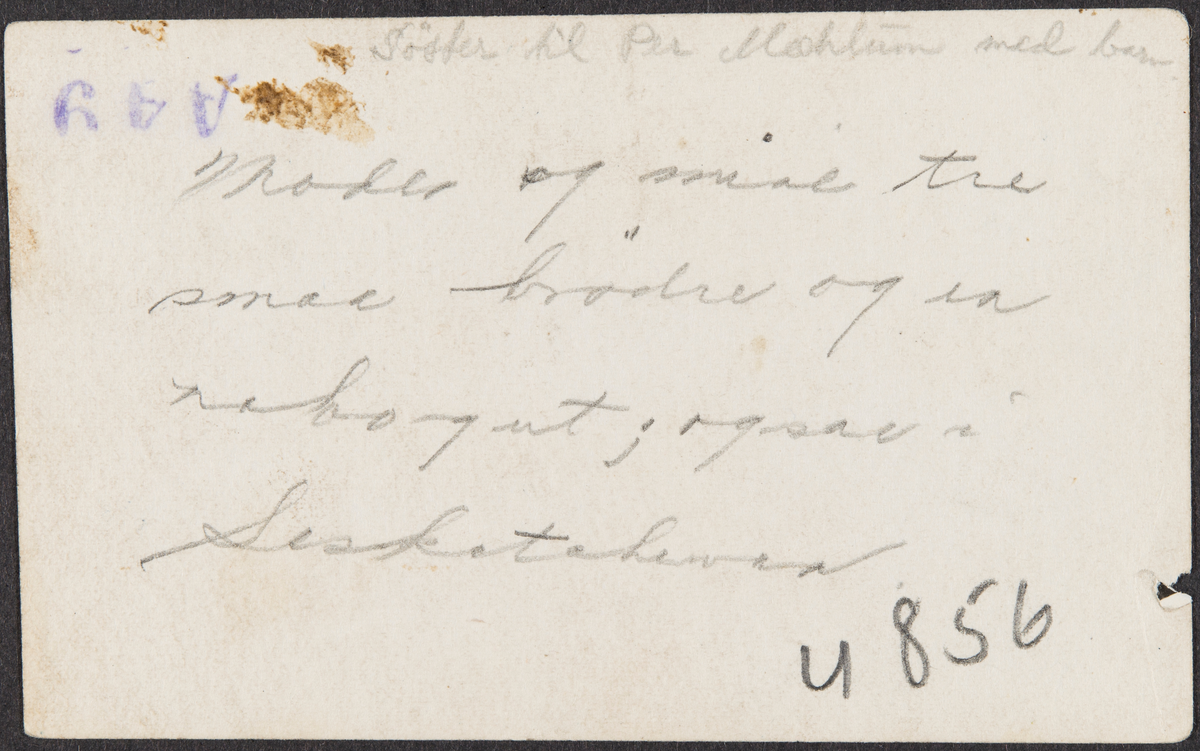 Söster til Per Mæhlum med barn
Moder og mine tre
smaa brödre og en
nabogut; ogsaa i
Seskatchewan
U 856